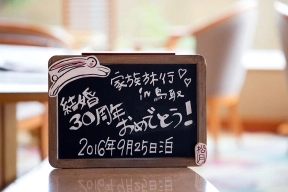 家族旅行♡♡
in鳥取
結婚
30周年
おめでとう!
2016年9月25日泊